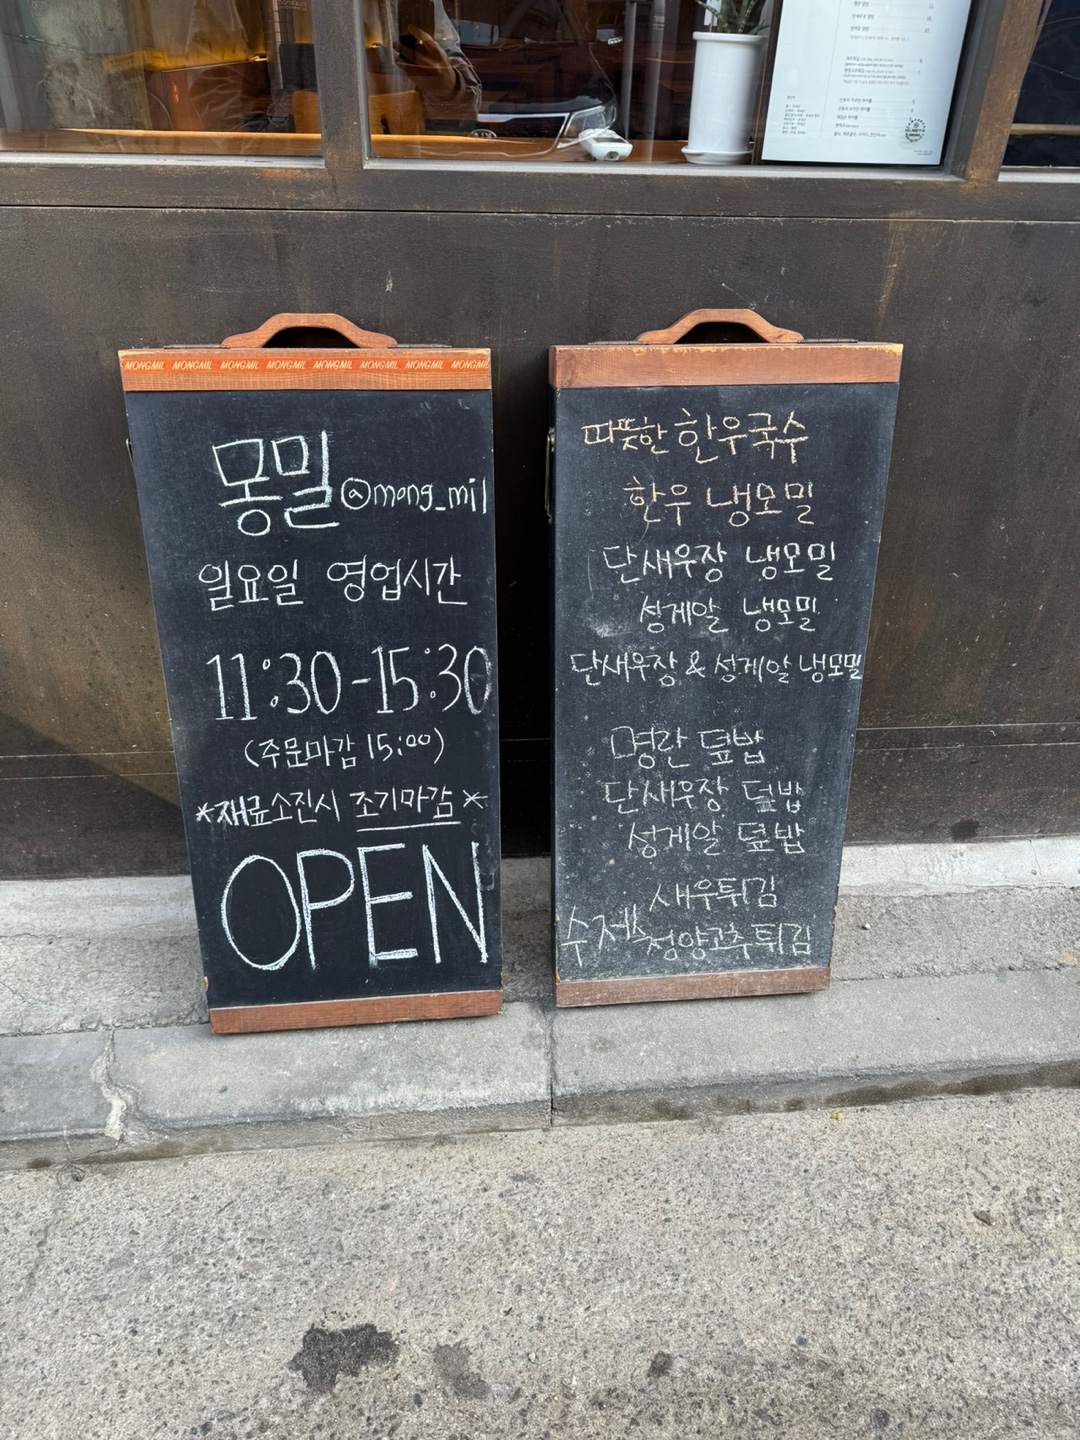 MONGMIL MONGMIL MONGMIL MONGMIL MONGMIL MONGMIL MONGMIL MONGMIL
몽밀 @mong_mil
일요일 영업시간
11:30-15:30
(주문마감 15:00)
*재료소진시 조기마감*
OPEN
따뜻한 한우국수
한우 냉모밀
단새우장 냉모밀
성게알 냉모밀
단새우장 & 성게알 냉모밀
명란 덮밥
단새우장 덮밥
성게알 덮밥
새우튀김
수제 청양고추튀김